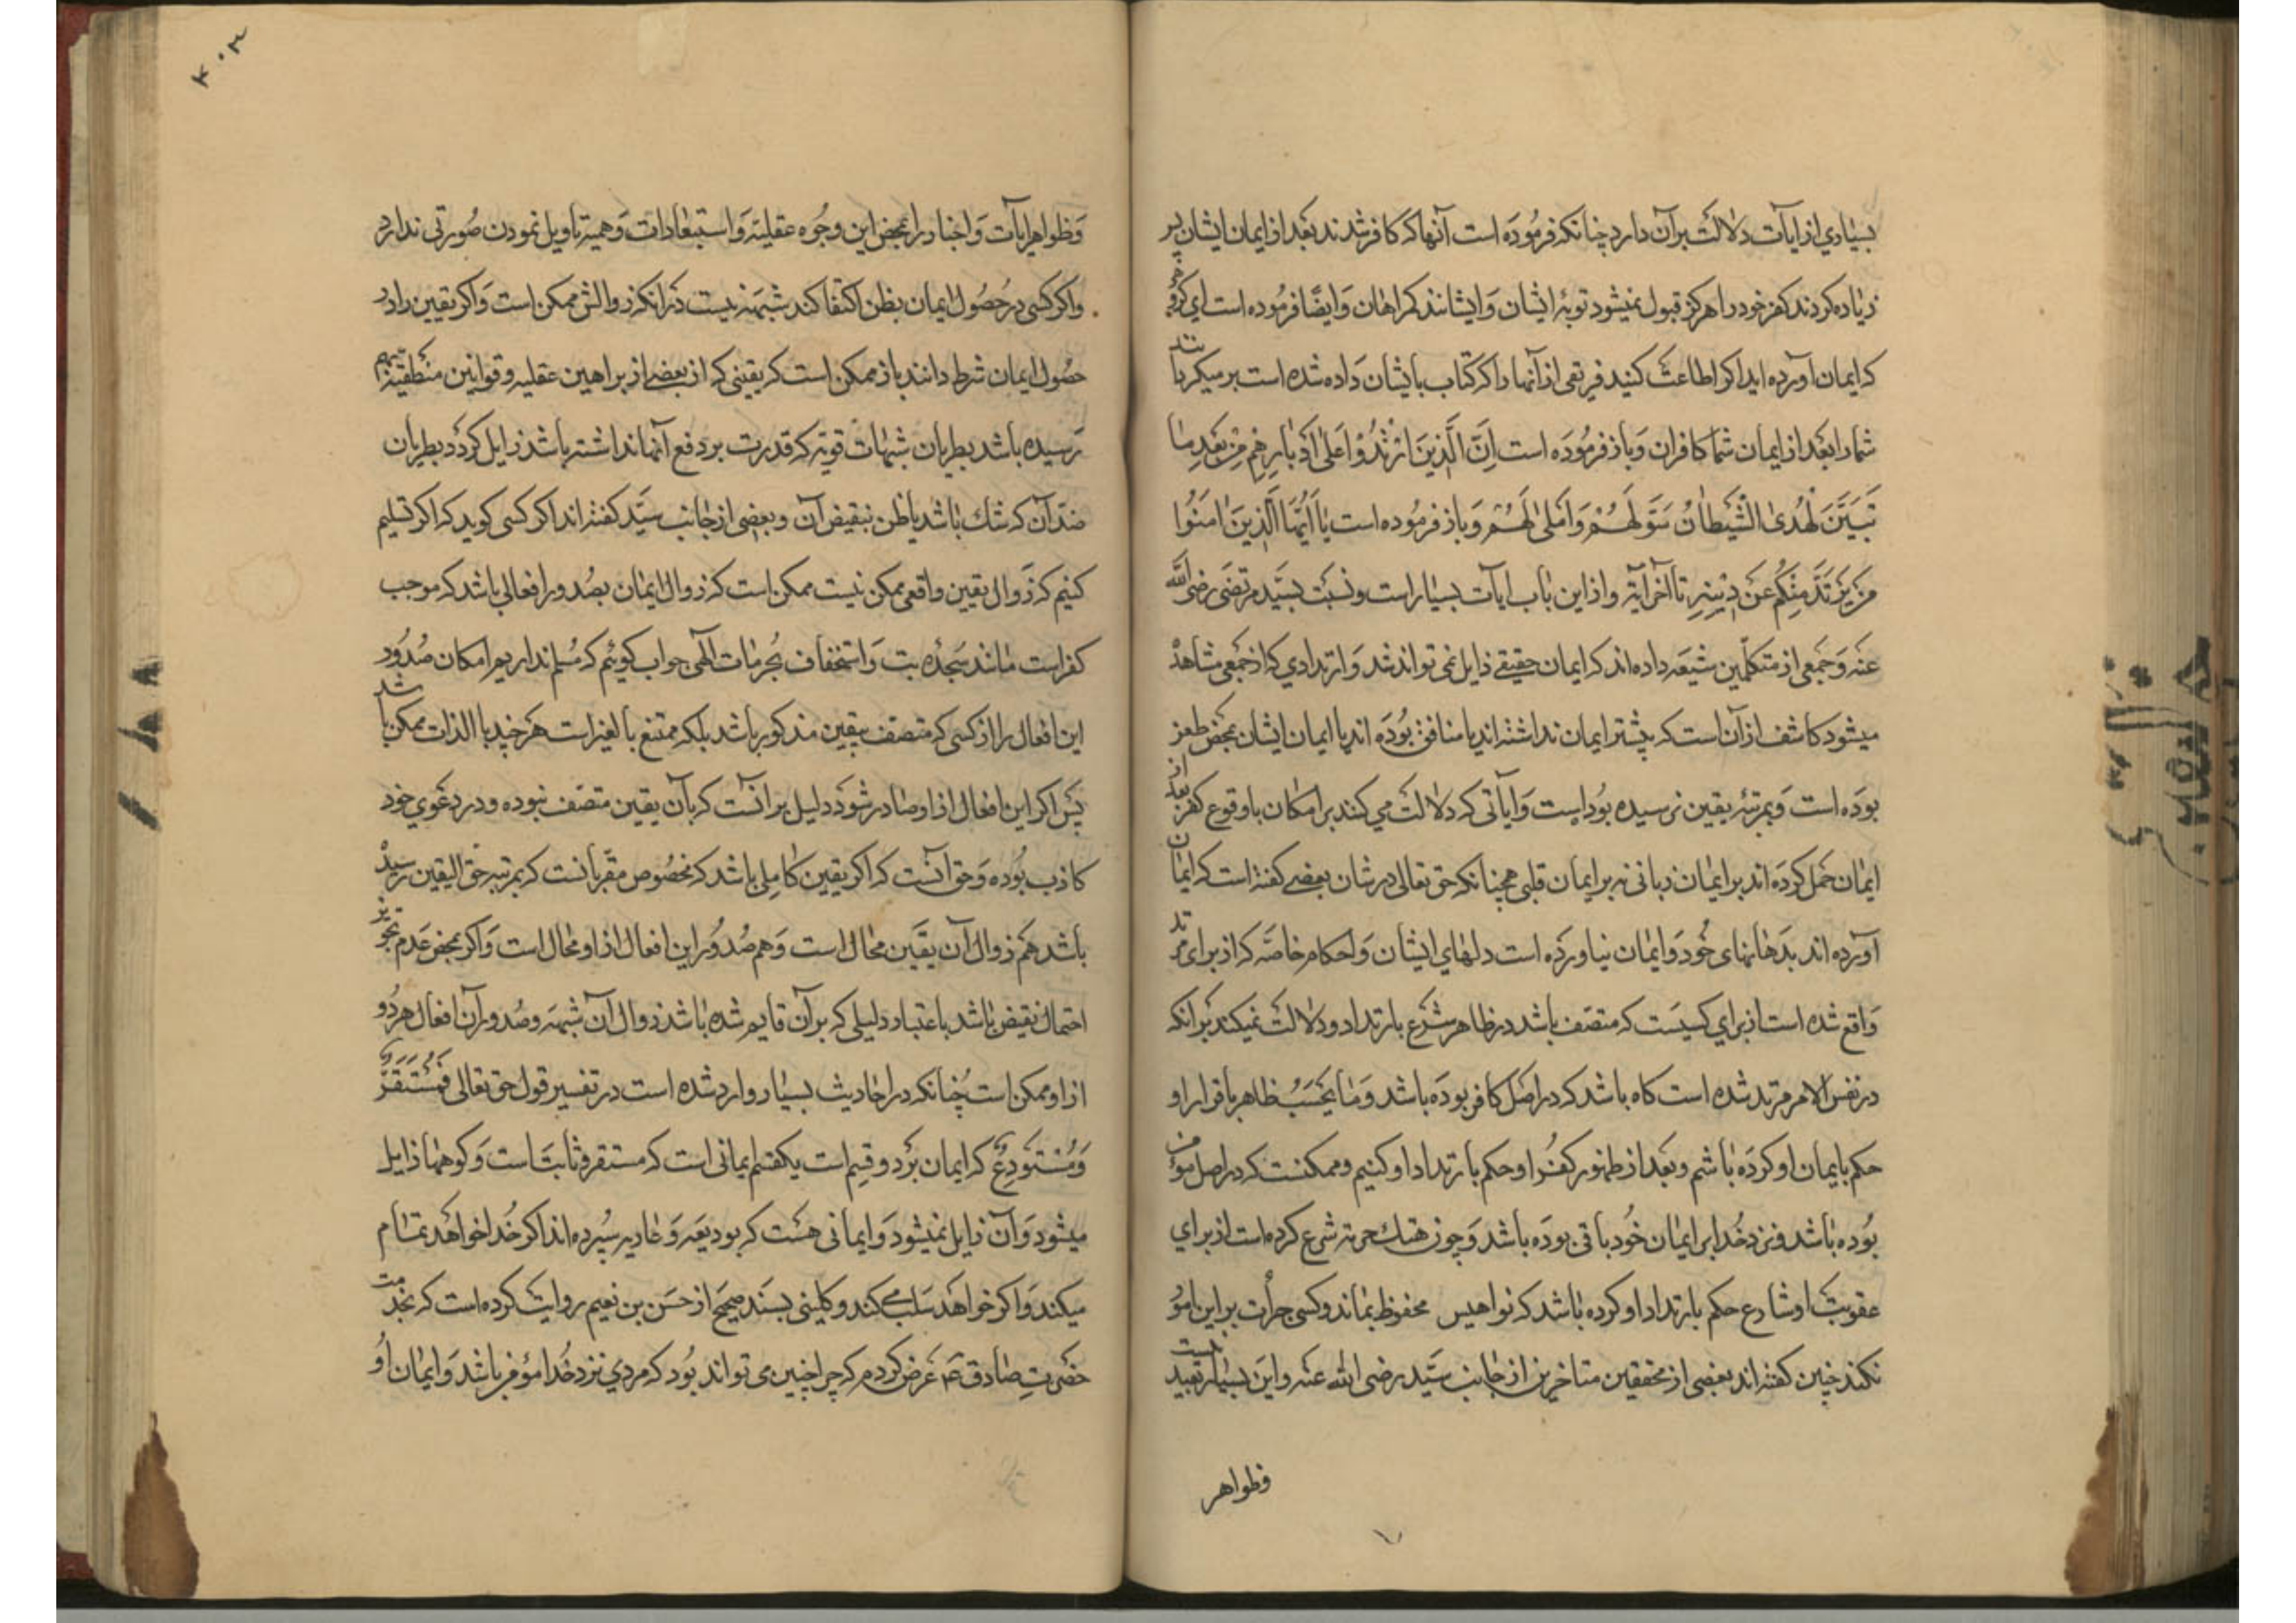 بسیاری از ایات دلالت بر آن دارد چنانکه فرموده است آنها که کافر شدند بعد از ایمان ایشان پس
زیاده کردند کفر خود را هرگز قبول نمیشود توبهٔ ایشان و ایشانند گمراهان و ایضا فرموده است ای گروهی
که ایمان آورده اید اگر اطاعت کنید فریقی از آنها را که کتاب بایشان داده شده است بر میگردانند
شما را بعد از ایمان شما کافران و باز فرموده است اِنَّ الَّذینَ ارْتَدُّوْا عَلیٰ اَدْبارِهِم مِنْ بَعْدِ ما
تَبَیَّنَ لَهُمُ الْهُدیٰ الشَّیْطانُ سَوَّلَ لَهُمْ وَ اَمْلیٰ لَهُمْ و باز فرموده است یا اَیُّهَا الَّذینَ امَنُوا
مَنْ یَرْتَدَّ مِنْکُمْ عَنْ دینِهِ تا آخر آیه و از این باب ایات بسیار است و نسبت بسید مرتضی رضی الله
عنه و جمعی از متکلمین شیعه داده اند که ایمان حقیقی زایل نمی تواند شد و ارتدادی که از جمعی مشاهد
میشود کاشف از آن است که پیشتر ایمان نداشته اند یا منافق بوده اند یا ایمان ایشان بمحض ظن
بوده است و بمرتبهٔ یقین نرسیده بوداست و آیاتی که دلالت می کنند بر امکان یا وقوع کفر بعد از
ایمان حمل کرده اند بر ایمان زبانی نه بر ایمان قلبی همچنانکه حق تعالی در شان بعضی گفته است که ایمان
آورده اند بدهانهای خود و ایمان نیاورده است دلهای ایشان و احکام خاصه که از برای مرتد
واقع شده است از برای کسیست که متصف باشد در ظاهر شرع بارتداد و دلالت نمیکند بر انکه
در نفس الامر مرتد شده است گاه باشد که در اصل کافر بوده باشد و ما بحَسَبِ ظاهر باقرار او
حکم بایمان او کرده باشم و بعد از ظهور کفر او حکم بارتداد او کنیم و ممکنست که در اصل مؤمن
بوده باشد و نزد خدا بر ایمان خود باقی بوده باشد و چون هتک حرمة شرع کرده است از برای
عقوبت او شارع حکم بارتداد او کرده باشد که نوامیس محفوظ بماند و کسی جرأت بر این امور
نکند چنین گفته اند بعضی از محققین متاخرین از جانب سید رضی الله عنه و این بسیار بعید است
وظواهر
۴۰۳
وظواهر ایات و اخبار را بمحض این وجوه عقلیه و استبعادات وهمیه تأویل نمودن صورتی ندارد
واگر کسی در حصول ایمان بظن اکتفا کند شبهه نیست در انکه زوالش ممکن است و اگر یقین را در
حصول ایمان شرط دانند باز ممکن است که یقینی که از بعضی از براهین عقلیه و قوانین منطقیه بهم
رسیده باشد بطریان شبهات قویه که قدرت بر دفع آنها نداشته باشد زایل گردد بطریان
ضد آن که شک باشد یا ظن بنقیض آن و بعضی از جانب سید گفته اند اگر کسی گوید که اگر تسلیم
کنیم که زوال یقین واقعی ممکن نیست ممکن است که زوال ایمان بصدور افعالی باشد که موجب
کفر است مانند سجده بت و استخفاف بحرمات الهی جواب گوئیم که مسلم نداریم امکان صدور
این افعال را از کسی که متصف بیقین مذکور باشد بلکه ممتنع بالغیر است هر چند با الذات ممکن باشد
پس اگر این افعال از او صادر شود دلیل بر انست که بآن یقین متصف نبوده و در دعوی خود
کاذب بوده و حق آنست که اگر یقین کامل باشد که مخصوص مقربانست که بمرتبه حق الیقین رسیده
باشد هم زوال آن یقین محال است و هم صدور این افعال از او محال است و اگر بمحض عدم تجویز
احتمال نقیض باشد باعتبار دلیلی که بر آن قایم شده باشد زوال آن شبهه و صدور آن افعال هر دو
از او ممکن است چنانکه در احادیث بسیار وارد شده است در تفسیر قول حق تعالی فَمُسْتَقَرٌّ
وَمُسْتَوْدَعٌ که ایمان بر دو قسم است یکقسم ایمانی است که مستقر و ثابت است و کوهها زایل
میشود و آن زایل نمیشود و ایمانی هست که بودیعه و عاریه سپرده اند اگر خدا خواهد تمام
میکند و اگر خواهد سلب می کند و کلینی بسند صحیح از حسن بن نعیم روایت کرده است که بخدمت
حضرتِ صادق ع عرض کردم که چرا چنین می تواند بود که مردی نزد خدا مؤمن باشد و ایمان او